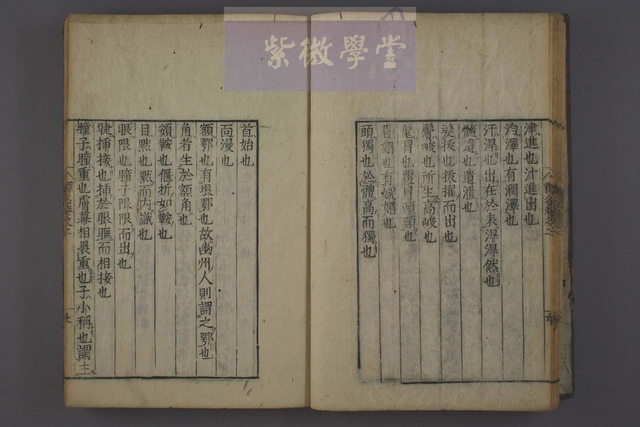 紫微學堂
津進也汁進出也
汋澤也有潤澤也
汗𣶏也出在於表𣶏𣶏然也
髓遺也遺𣸣也
髮拔也拔擢而出也
鬢峻也所生高峻也
頭獨也於體高而獨也
首始也
面漫也
額鄂也有垠鄂也故幽州人則謂之鄂也
角者生於額角也
頞鞍也偃折如鞍也
目默也默而內識也
眼限也瞳子限限而出也
睫插接也插於眼匡而相接也
瞳子瞳重也膚幕相裹重也子小稱也謂主